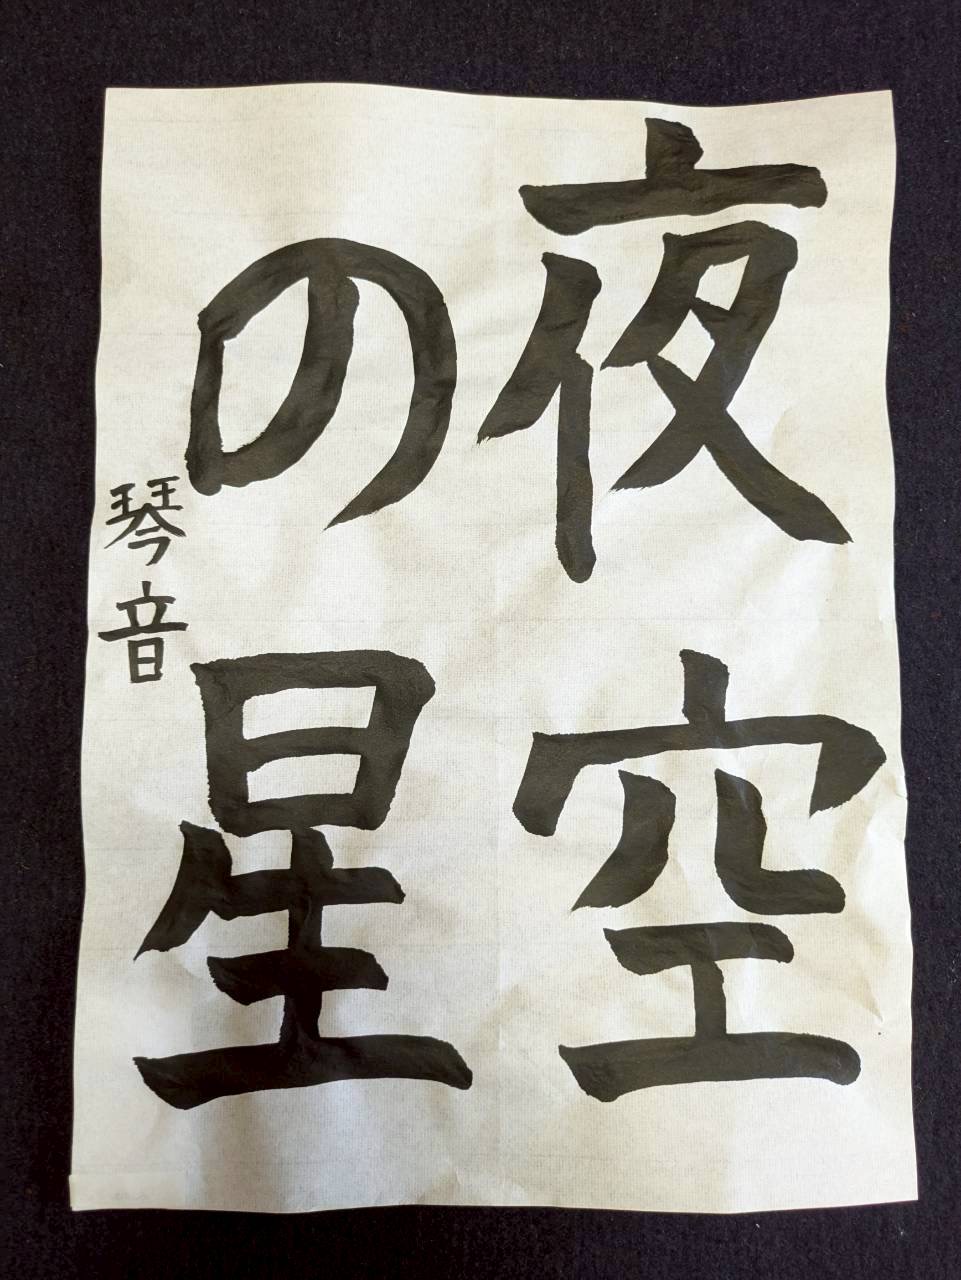 夜空
の星
琴音